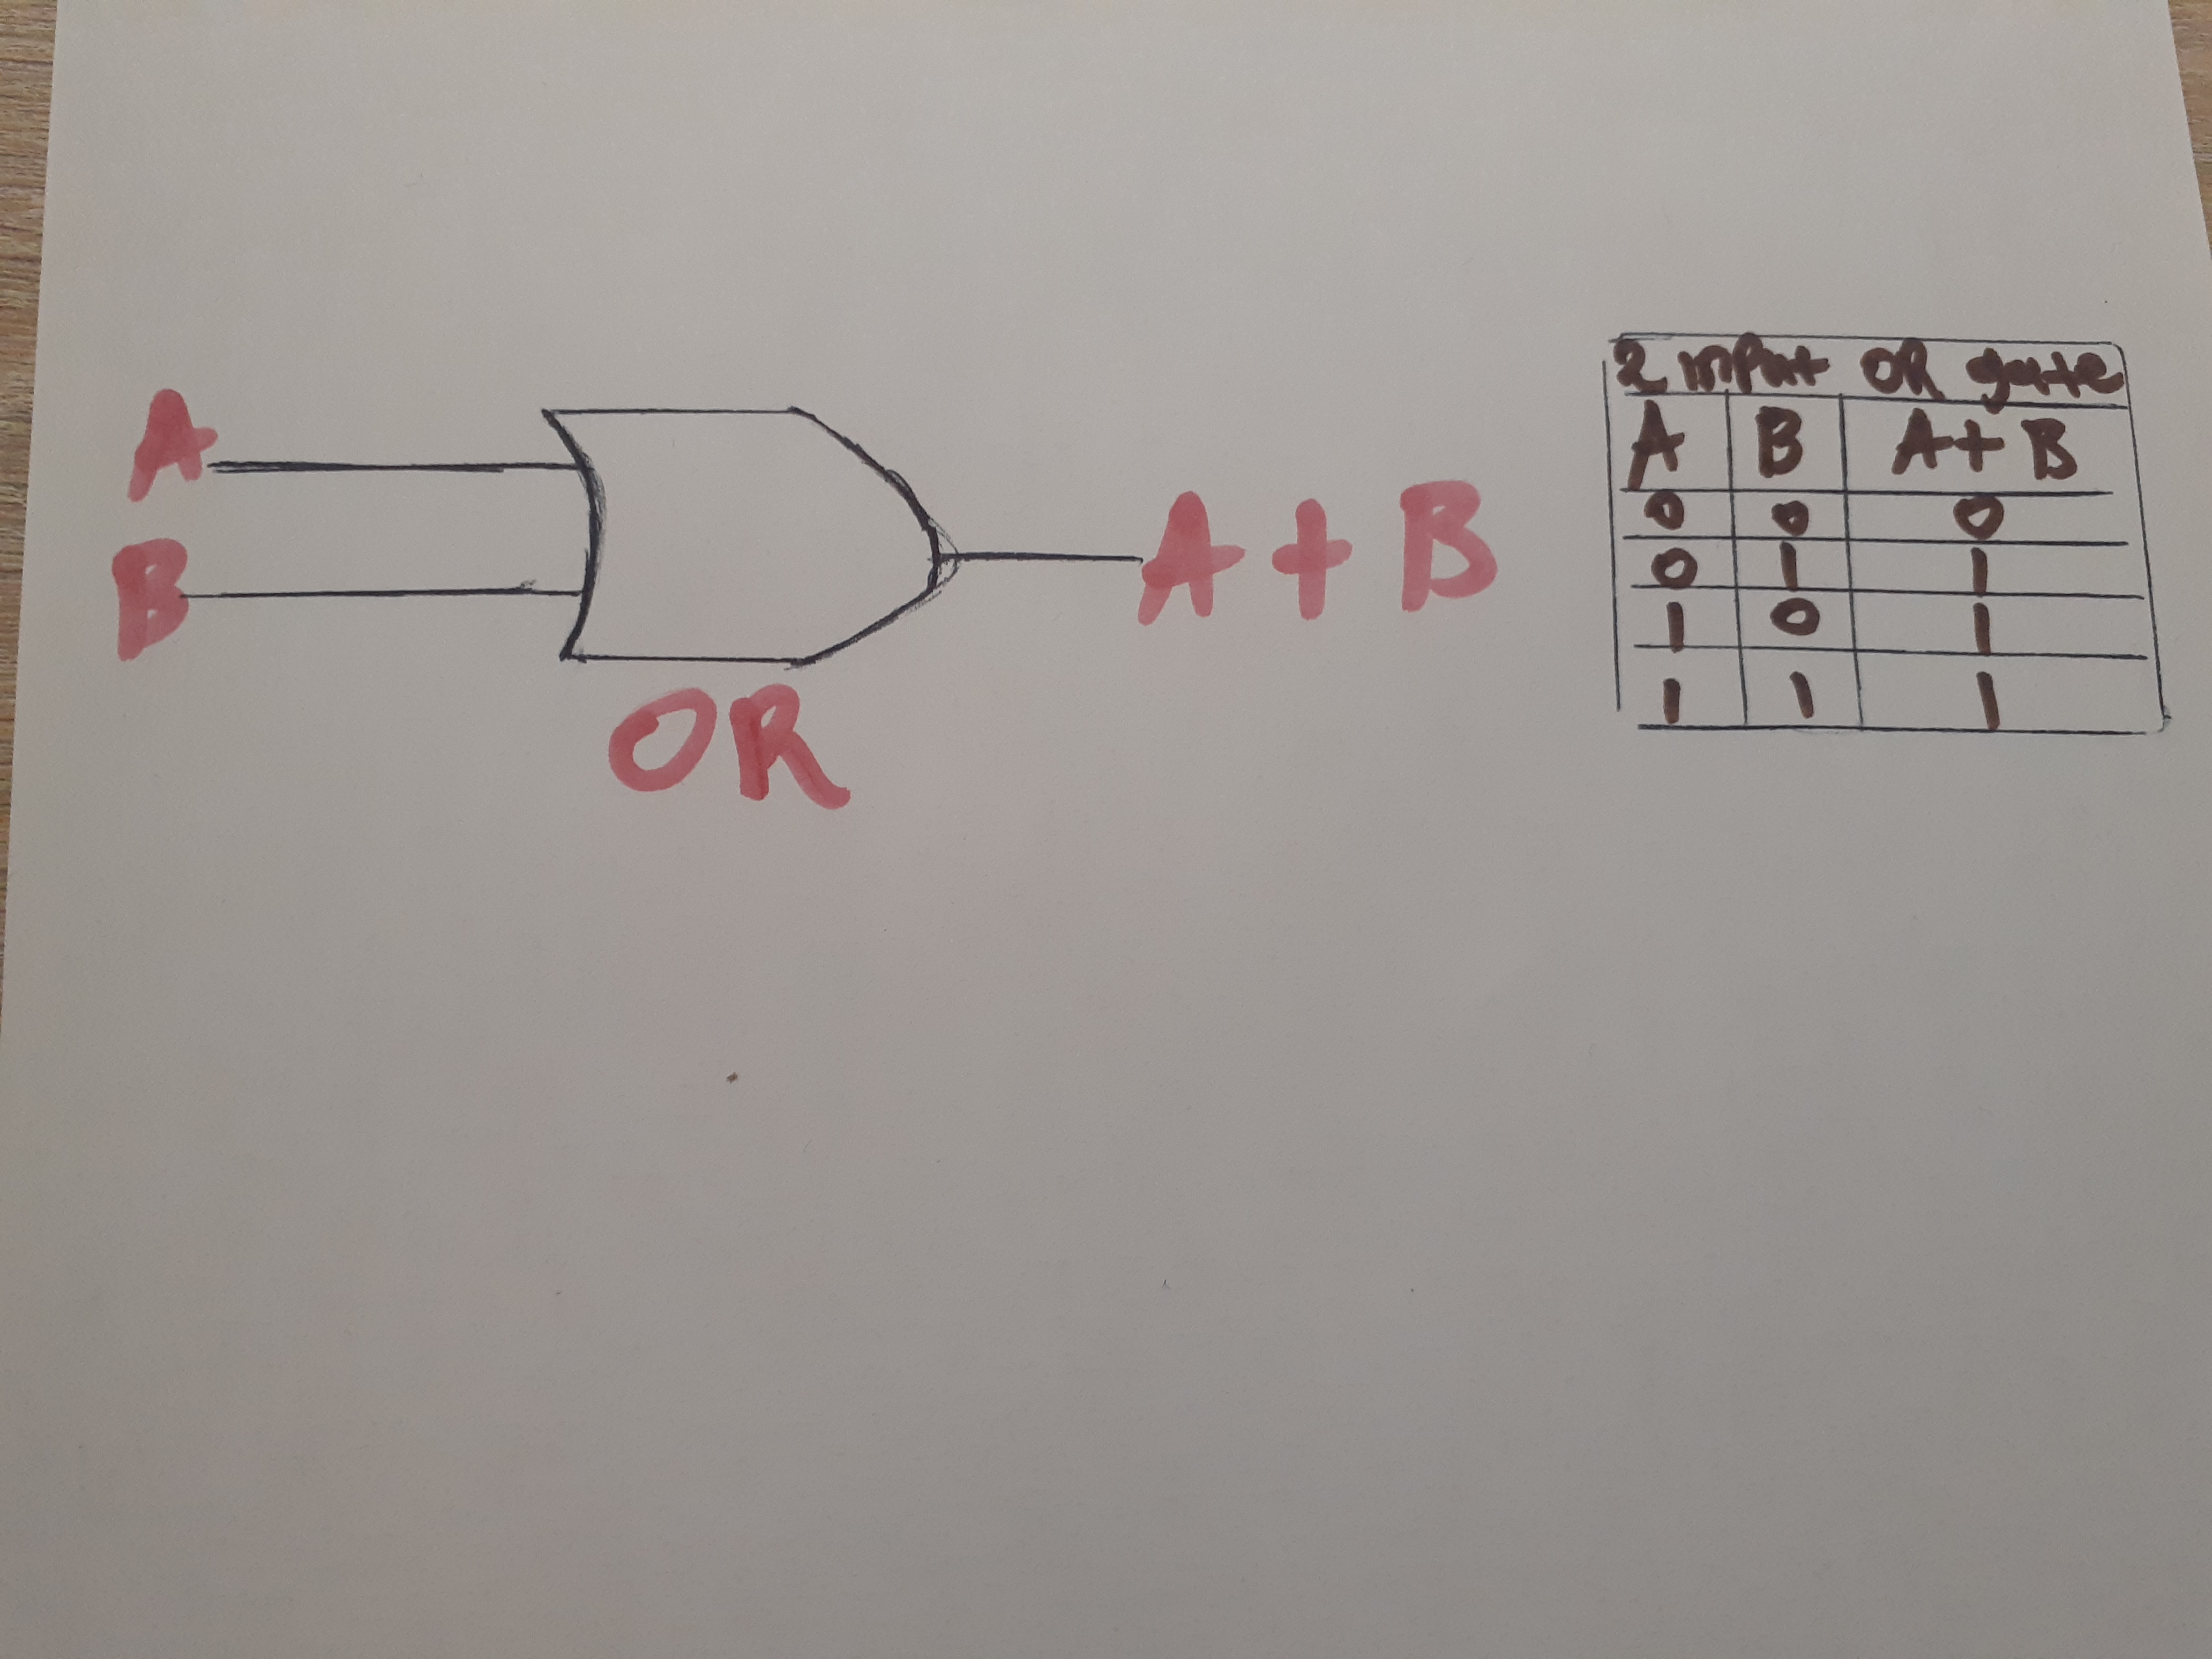 A
B
A + B
OR
2 input OR gate
A B A+B
0 0 0
0 1 1
1 0 1
1 1 1